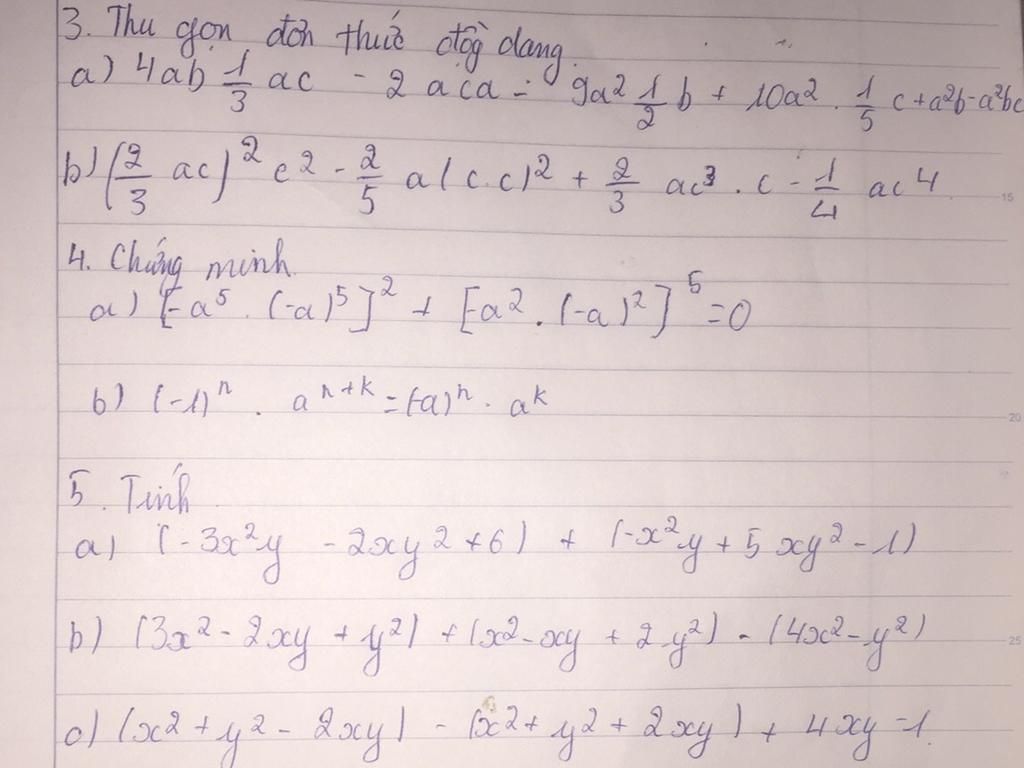 3. Thu gọn đơn thức đồg dạng.
a) 4ab 1/3 ac - 2 aca - 9a² 1/2 b + 10a² . 1/5 c + a²b - a²bc
b) (2/3 ac)² c² - 2/5 a(c.c)² + 2/3 ac³ . c - 1/4 ac⁴
4. Chứng minh
a) [-a⁵ . (-a)⁵]² + [-a² . (-a)²]⁵ = 0
b) (-1)ⁿ . aⁿ⁺ᵏ = (-a)ⁿ . aᵏ
5. Tính
a) (-3x²y - 2xy² + 6) + (-x²y + 5xy² - 1)
b) (3x² - 2xy + y²) + (x² - xy + 2y²) - (4x² - y²)
c) (x² + y² - 2xy) - (x² + y² + 2xy) + 4xy - 1.
15
20
25